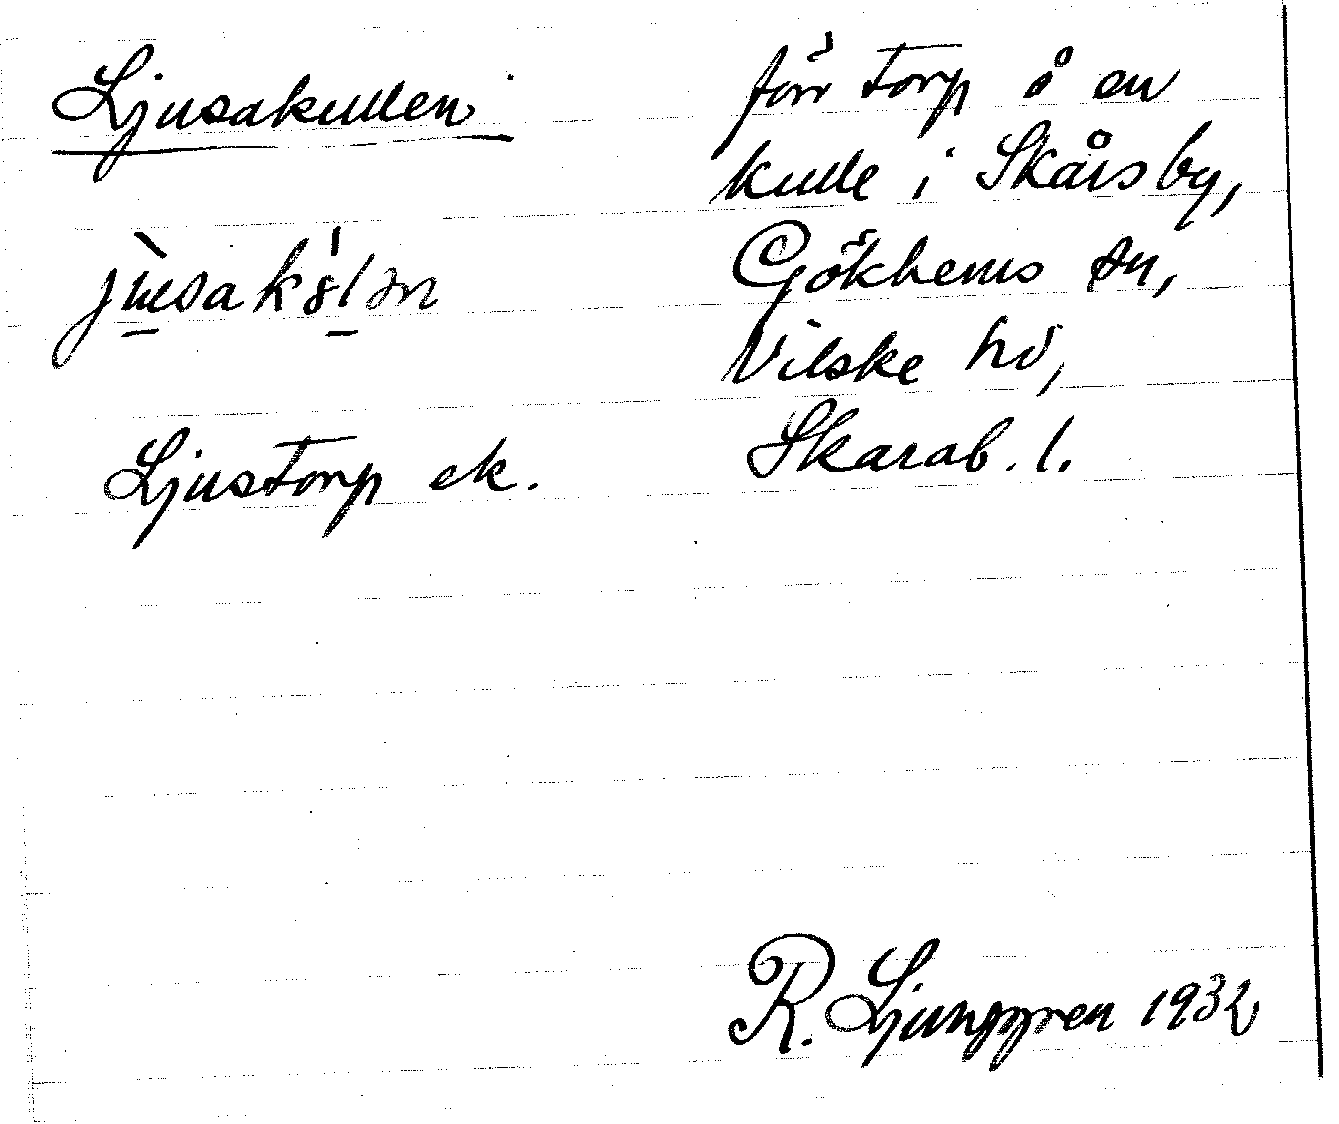 Ljusakullen
Ljustorp ek.
förr torp å en
kulle i Skårsby,
Gökhems sn,
Vilske hd,
Skarab. l.
R. Ljunggren 1932